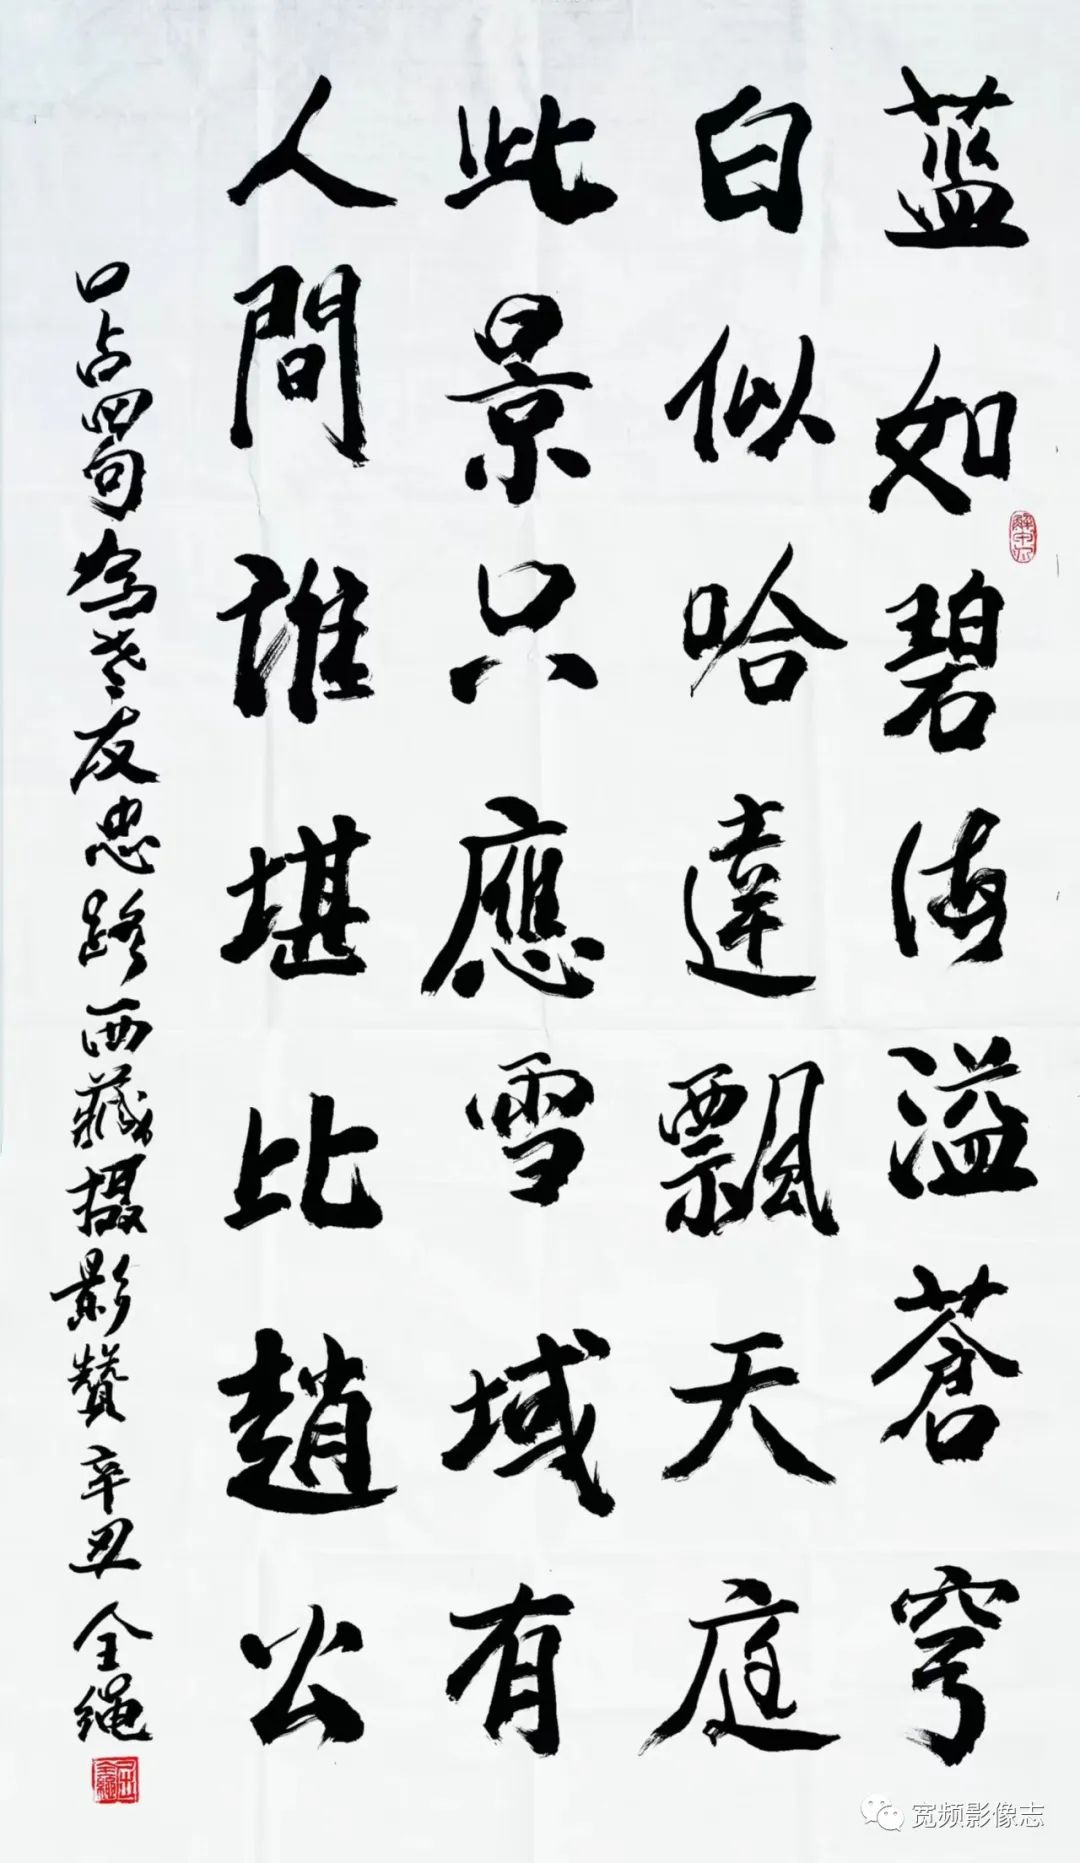 藍如碧海溢蒼穹
白似哈達飄天庭
此景只應雪域有
人間誰堪比趙公
口占四句為老友忠路西藏摄影贊辛丑全绳
宽频影像志